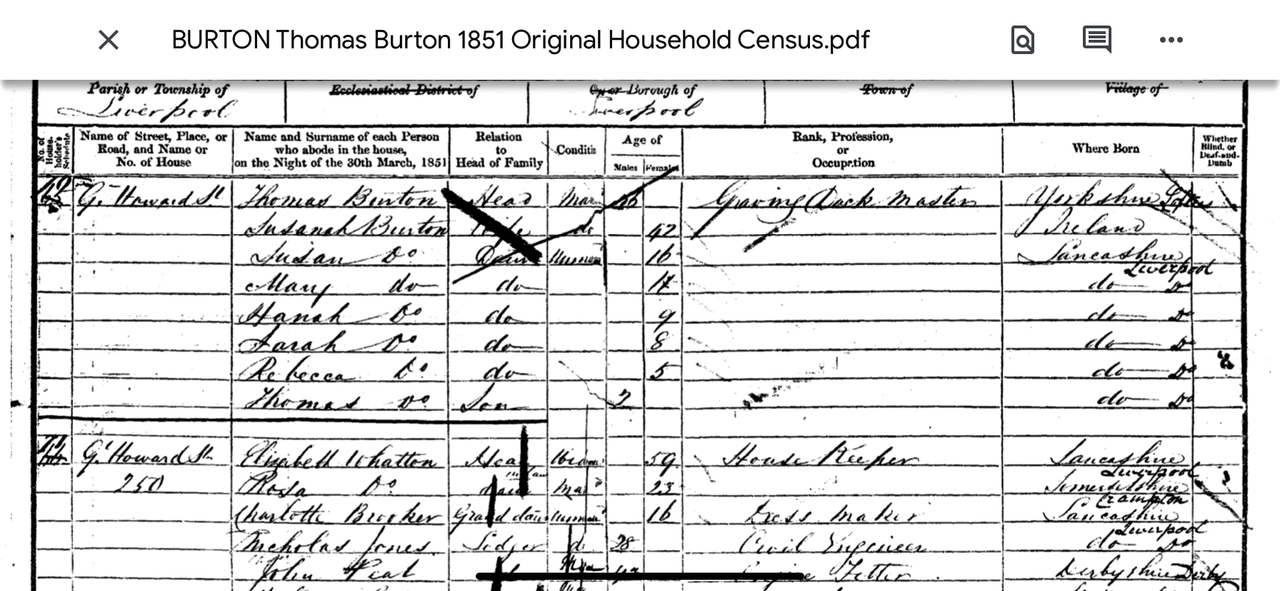 BURTON Thomas Burton 1851 Original Household Census.pdf
Parish or Township of Ecclesiastical District of City or Borough of Town of Village of
Liverpool Liverpool
No. of House-holder's Schedule Name of Street, Place, or Road, and Name or No. of House Name and Surname of each Person who abode in the house, on the Night of the 30th March, 1851 Relation to Head of Family Condition Age of Males Females Rank, Profession, or Occupation Where Born Whether Blind, or Deaf-and-Dumb
Gt Howard St Thomas Burton Head Mar Graving Dock Master Yorkshire
Susanah Burton Wife do 42 Ireland
Susan Do Daur Unmar 16 Lancashire Liverpool
Mary do do do Do
Hanah Do do 9 do Do
Sarah Do do 8 do Do
Rebecca Do do 5 do Do
Thomas Do Son 2 do Do
Gt Howard St Elizabeth Whatton Head 59 House Keeper Lancashire Liverpool
250 Rosa Do Mar 23 Somersetshire
Charlotte Brooker Grand daur Unmar 16 Dress Maker Lancashire Liverpool
Nicholas Jones Lodger do 28 Civil Engineer do Do
John Peat Engine Fitter Derbyshire Derby